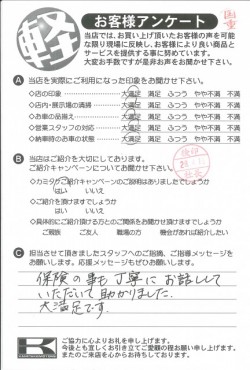 軽
お客様アンケート
当店では、お買い上げ頂いたお客様の声を可能
な限り現場に反映し、お客様により良い商品と
サービスを提供する事に努めています。
大変お手数ですが是非お声をお聞かせ下さい。
A 当店を実際にご利用になった印象をお聞かせ下さい。
◇店の印象 大満足 満足 ふつう やや不満 不満
◇店内・展示場の清掃 大満足 満足 ふつう やや不満 不満
◇お車の品揃え 大満足 満足 ふつう やや不満 不満
◇営業スタッフの対応 大満足 満足 ふつう やや不満 不満
◇納車時のお車の状態 大満足 満足 ふつう やや不満 不満
B 当店はご紹介を大切にしております。
ご紹介キャンペーンについてお聞かせ下さい。
◇カミタがご紹介キャンペーンのご説明はありましたでしょうか
はい いいえ
◇ご紹介を頂けますでしょうか
はい いいえ
◇具体的にご紹介頂ける方とのご関係をお聞かせ頂けますでしょうか
ご親族 ご友人 職場の方 機会があれば紹介したい
C 担当させて頂きましたスタッフへのご指摘、ご指導メッセージを
お願いします。応援メッセージもぜひお願いします。
保険の事も丁寧にお話しして
いただいて助かりました。
大満足です。
ご協力に心よりお礼を申し上げます。
今後とも宜しくお引き立てご愛顧の程お願い申し上げます。
またのご来店を心からお待ちしております。